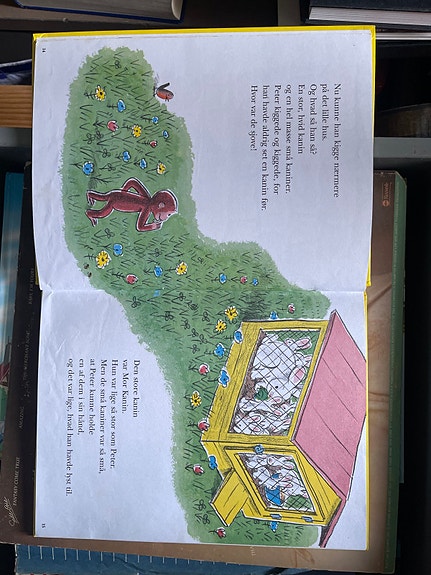 Nu kunne han kigge nærmere
på det lille hus.
Og hvad så han så?
En stor, hvid kanin
og en hel masse små kaniner.
Peter kiggede og kiggede, for
han havde aldrig set en kanin før.
Hvor var de sjove!
14
Den store kanin
var Mor Kanin.
Hun var lige så stor som Peter.
Men de små kaniner var så små,
at Peter kunne holde
en af dem i sin hånd,
og det var lige, hvad han havde lyst til.
15